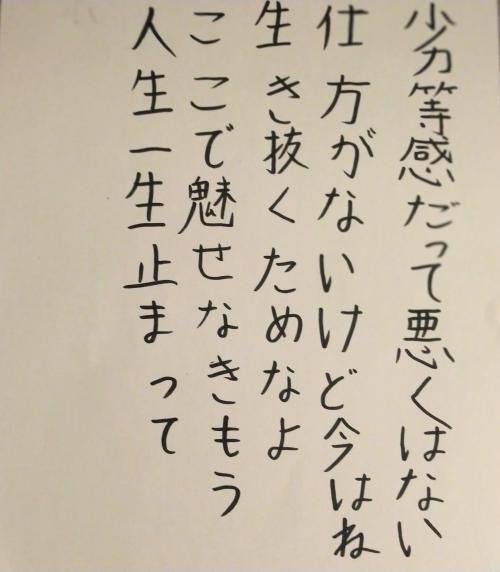 劣等感だって悪くはない
仕方がないけど今はね
生き抜くためなよ
ここで魅せなきもう
人生一生止まって